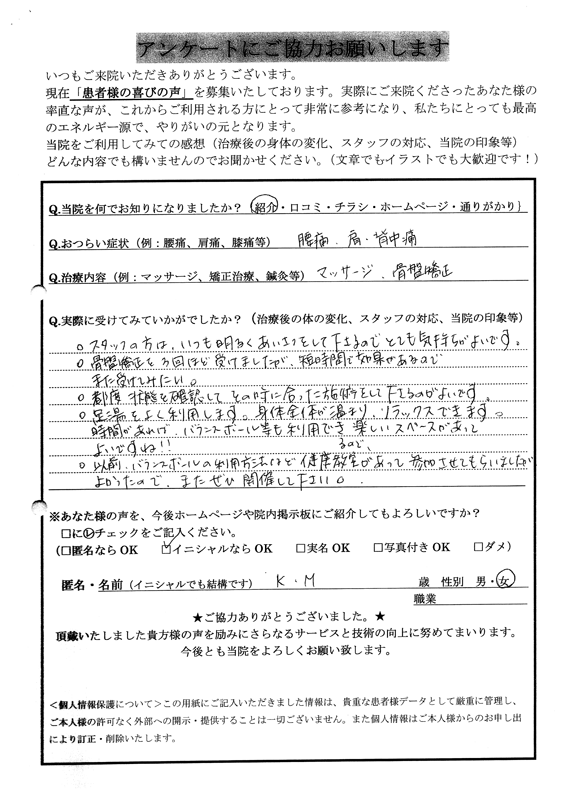 アンケートにご協力お願いします
いつもご来院いただきありがとうございます。
現在「患者様の喜びの声」を募集いたしております。実際にご来院くださったあなた様の
率直な声が、これからご利用される方にとって非常に参考になり、私たちにとっても最高
のエネルギー源で、やりがいの元となります。
当院をご利用してみての感想（治療後の身体の変化、スタッフの対応、当院の印象等）
どんな内容でも構いませんのでお聞かせください。（文章でもイラストでも大歓迎です！）
Q.当院を何でお知りになりましたか？（紹介・口コミ・チラシ・ホームページ・通りがかり）
Q.おつらい症状（例：腰痛、肩痛、膝痛等） 腰痛、肩・背中痛
Q.治療内容（例：マッサージ、矯正治療、鍼灸等） マッサージ、骨盤矯正
Q.実際に受けてみていかがでしたか？（治療後の体の変化、スタッフの対応、当院の印象等）
○スタッフの方は、いつも明るくあいさつをして下さるのでとても気持ちがよいです。
○骨盤矯正を3回ほど受けましたが、短時間で効果があるので
また受けてみたい。
○都度、状態を確認して、その時に合った施術をして下さるのがよいです。
○足湯をよく利用します。身体全体が温まり、リラックスできます。
時間があれば、バランスボール等も利用でき 楽しいスペースがあって
よいですね!! るので、
○以前、バランスボールの利用方法など健康教室があって 参加させてもらいましたが
よかったので、またぜひ開催して下さい。
※あなた様の声を、今後ホームページや院内掲示板にご紹介してもよろしいですか？
□に✓チェックをご記入ください。
（□匿名ならOK ☑イニシャルならOK □実名OK □写真付きOK □ダメ）
匿名・名前（イニシャルでも結構です） K.M 歳 性別 男・女
職業
★ご協力ありがとうございました。★
頂戴いたしました貴方様の声を励みにさらなるサービスと技術の向上に努めてまいります。
今後とも当院をよろしくお願い致します。
＜個人情報保護について＞この用紙にご記入いただきました情報は、貴重な患者様データとして厳重に管理し、
ご本人様の許可なく外部への開示・提供することは一切ございません。また個人情報はご本人様からのお申し出
により訂正・削除いたします。